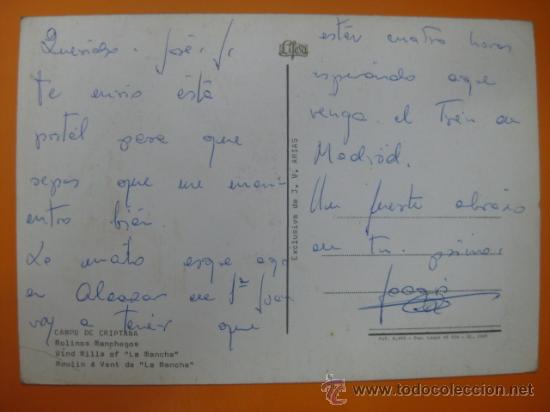 Querido José. V.
te envio ésta
postál para que
sepas que me encu-
entro bién.
Lo malo es que aqui
en Alcazar de S. Juan
voy a tener que
CAMPO DE CRIPTANA
Molinos Manchegos
Wind Mills of "La Mancha"
Moulin á Vent de "La Mancha"
Exclusiva de J. V. ARIAS
estár cuatro horas
esperándo a que
venga el Trén de
Madrid.
Un fuerte abrazo
de tu primo.
www.todocoleccion.net